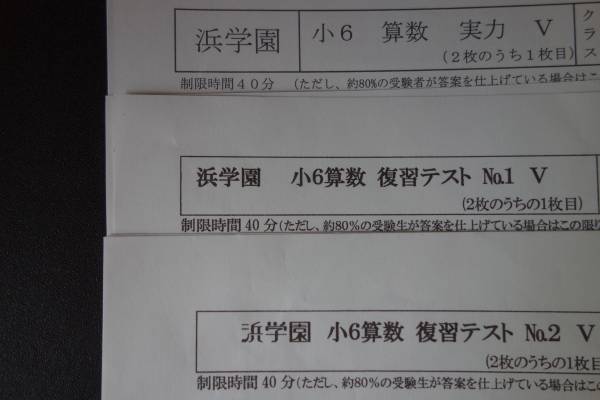 浜学園 小6 算数 実力 V クラス
(2枚のうち1枚目)
制限時間40分 (ただし、約80%の受験者が答案を仕上げている場合はこ
浜学園 小6算数 復習テスト No.1 V
(2枚のうちの1枚目)
制限時間 40 分(ただし、約80%の受験生が答案を仕上げている場合はこの限り
浜学園 小6算数 復習テスト No.2 V
(2枚のうちの1枚目
制限時間 40 分(ただし、約80%の受験生が答案を仕上げている場合はこの